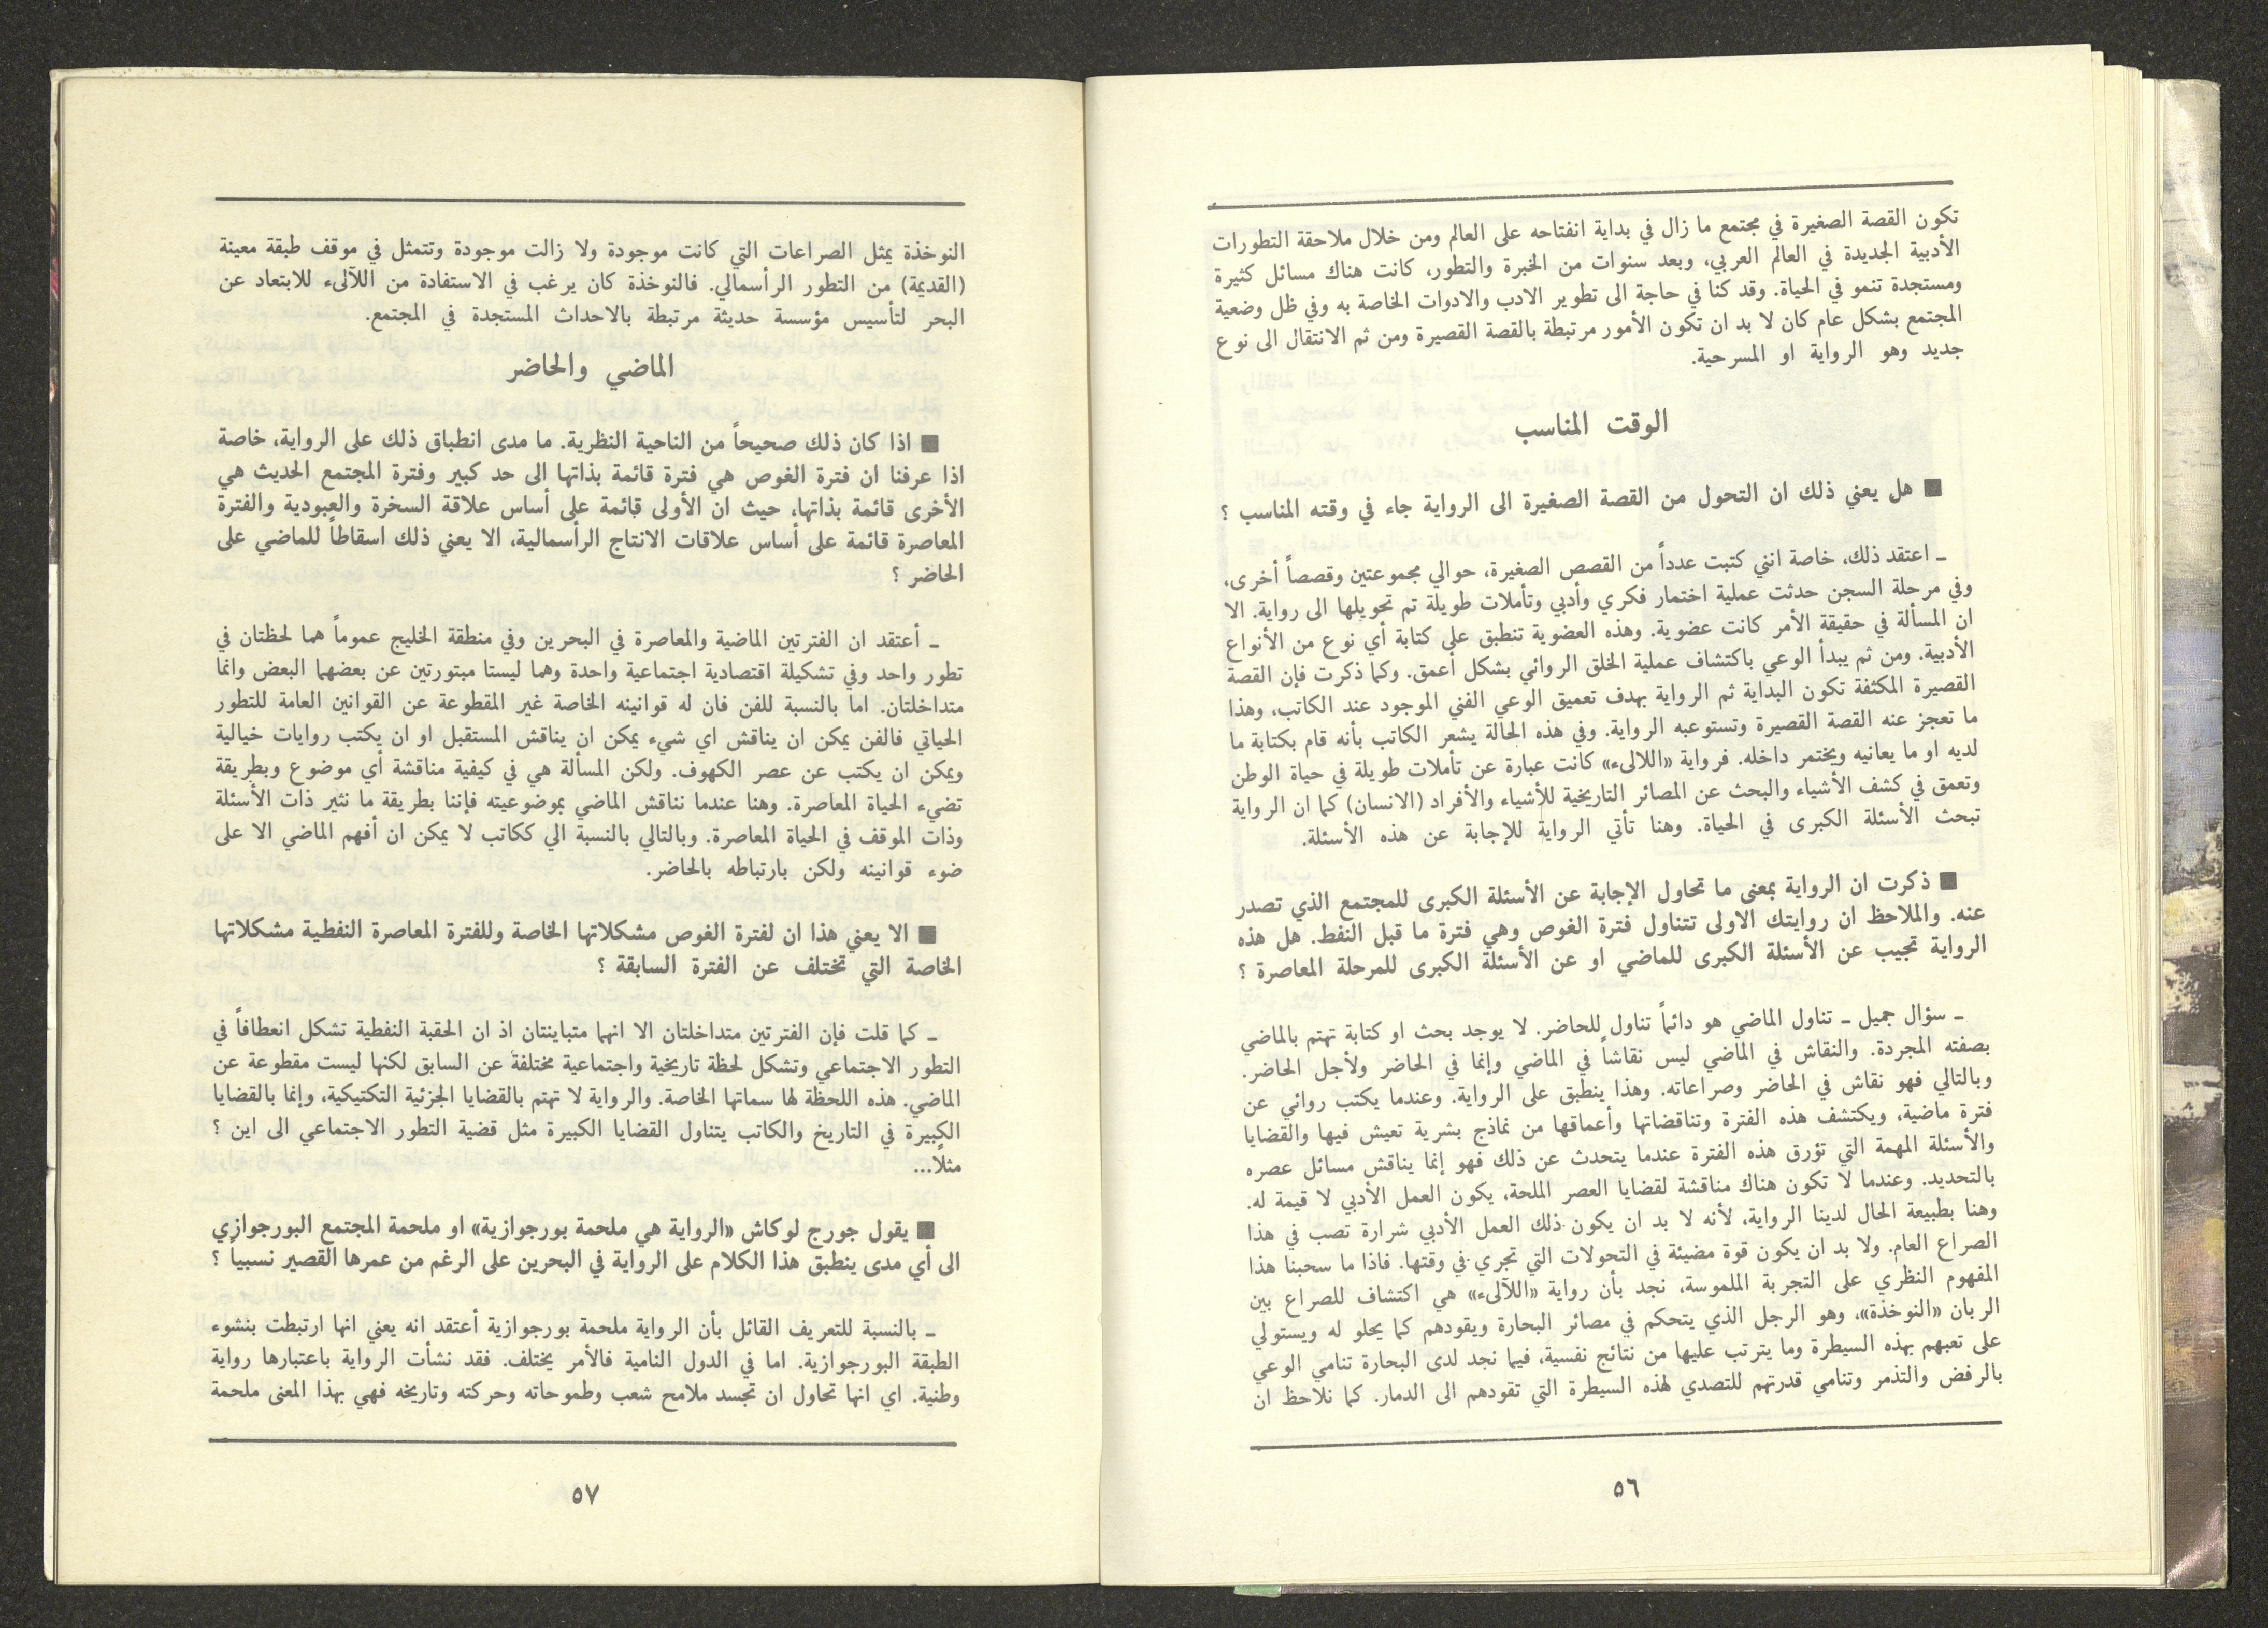 تكون القصة الصغيرة في مجتمع ما زال في بداية انفتاحه على العالم ومن خلال ملاحقة التطورات
الأدبية الجديدة في العالم العربي، وبعد سنوات من الخبرة والتطور، كانت هناك مسائل كثيرة
ومستجدة تنمو في الحياة. وقد كنا في حاجة الى تطوير الادب والادوات الخاصة به وفي ظل وضعية
المجتمع بشكل عام كان لا بد ان تكون الأمور مرتبطة بالقصة القصيرة ومن ثم الانتقال الى نوع
جديد وهو الرواية او المسرحية.
الوقت المناسب
■ هل يعني ذلك ان التحول من القصة الصغيرة الى الرواية جاء في وقته المناسب ؟
ـ اعتقد ذلك، خاصة انني كتبت عدداً من القصص الصغيرة، حوالي مجموعتين وقصصاً أخرى،
وفي مرحلة السجن حدثت عملية اختمار فكري وأدبي وتأملات طويلة تم تحويلها الى رواية. الا
ان المسألة في حقيقة الأمر كانت عضوية. وهذه العضوية تنطبق على كتابة أي نوع من الأنواع
الأدبية. ومن ثم يبدأ الوعي باكتشاف عملية الخلق الروائي بشكل أعمق. وكما ذكرت فإن القصة
القصيرة المكثفة تكون البداية ثم الرواية بهدف تعميق الوعي الفني الموجود عند الكاتب، وهذا
ما تعجز عنه القصة القصيرة وتستوعبه الرواية. وفي هذه الحالة يشعر الكاتب بأنه قام بكتابة ما
لديه او ما يعانيه ويختمر داخله. فرواية «اللالىء» كانت عبارة عن تأملات طويلة في حياة الوطن
وتعمق في كشف الأشياء والبحث عن المصائر التاريخية للأشياء والأفراد (الانسان) كما ان الرواية
تبحث الأسئلة الكبرى في الحياة. وهنا تأتي الرواية للإجابة عن هذه الأسئلة.
■ ذكرت ان الرواية بمعنى ما تحاول الإجابة عن الأسئلة الكبرى للمجتمع الذي تصدر
عنه. والملاحظ ان روايتك الاولى تتناول فترة الغوص وهي فترة ما قبل النفط. هل هذه
الرواية تجيب عن الأسئلة الكبرى للماضي او عن الأسئلة الكبرى للمرحلة المعاصرة ؟
ـ سؤال جميل ـ تناول الماضي هو دائماً تناول للحاضر. لا يوجد بحث او كتابة تهتم بالماضي
بصفته المجردة. والنقاش في الماضي ليس نقاشاً في الماضي وإنما في الحاضر ولأجل الحاضر.
وبالتالي فهو نقاش في الحاضر وصراعاته. وهذا ينطبق على الرواية. وعندما يكتب روائي عن
فترة ماضية، ويكتشف هذه الفترة وتناقضاتها وأعماقها من نماذج بشرية تعيش فيها والقضايا
والأسئلة المهمة التي تؤرق هذه الفترة عندما يتحدث عن ذلك فهو إنما يناقش مسائل عصره
بالتحديد. وعندما لا تكون هناك مناقشة لقضايا العصر الملحة، يكون العمل الأدبي لا قيمة له.
وهنا بطبيعة الحال لدينا الرواية، لأنه لا بد ان يكون ذلك العمل الأدبي شرارة تصب في هذا
الصراع العام. ولا بد ان يكون قوة مضيئة في التحولات التي تجري في وقتها. فاذا ما سحبنا هذا
المفهوم النظري على التجربة الملموسة، نجد بأن رواية «اللآلىء» هي اكتشاف للصراع بين
الربان «النوخذة»، وهو الرجل الذي يتحكم في مصائر البحارة ويقودهم كما يحلو له ويستولي
على تعبهم بهذه السيطرة وما يترتب عليها من نتائج نفسية، فيما نجد لدى البحارة تنامي الوعي
بالرفض والتذمر وتنامي قدرتهم للتصدي لهذه السيطرة التي تقودهم الى الدمار. كما نلاحظ ان
٥٦
النوخذة يمثل الصراعات التي كانت موجودة ولا زالت موجودة وتتمثل في موقف طبقة معينة
(القديمة) من التطور الرأسمالي. فالنوخذة كان يرغب في الاستفادة من اللآلىء للابتعاد عن
البحر لتأسيس مؤسسة حديثة مرتبطة بالاحداث المستجدة في المجتمع.
الماضي والحاضر
■ اذا كان ذلك صحيحاً من الناحية النظرية. ما مدى انطباق ذلك على الرواية، خاصة
اذا عرفنا ان فترة الغوص هي فترة قائمة بذاتها الى حد كبير وفترة المجتمع الحديث هي
الأخرى قائمة بذاتها، حيث ان الأولى قائمة على أساس علاقة السخرة والعبودية والفترة
المعاصرة قائمة على أساس علاقات الانتاج الرأسمالية، الا يعني ذلك اسقاطاً للماضي على
الحاضر ؟
ـ أعتقد ان الفترتين الماضية والمعاصرة في البحرين وفي منطقة الخليج عموماً هما لحظتان في
تطور واحد وفي تشكيلة اقتصادية اجتماعية واحدة وهما ليستا مبتورتين عن بعضهما البعض وانما
متداخلتان. اما بالنسبة للفن فان له قوانينه الخاصة غير المقطوعة عن القوانين العامة للتطور
الحياتي فالفن يمكن ان يناقش اي شيء يمكن ان يناقش المستقبل او ان يكتب روايات خيالية
ويمكن ان يكتب عن عصر الكهوف. ولكن المسألة هي في كيفية مناقشة أي موضوع وبطريقة
تضيء الحياة المعاصرة. وهنا عندما نناقش الماضي بموضوعيته فإننا بطريقة ما نثير ذات الأسئلة
وذات الموقف في الحياة المعاصرة. وبالتالي بالنسبة الي ككاتب لا يمكن ان أفهم الماضي الا على
ضوء قوانينه ولكن بارتباطه بالحاضر.
■ الا يعني هذا ان لفترة الغوص مشكلاتها الخاصة وللفترة المعاصرة النفطية مشكلاتها
الخاصة التي تختلف عن الفترة السابقة ؟
ـ كما قلت فإن الفترتين متداخلتان الا انهما متباينتان اذ ان الحقبة النفطية تشكل انعطافاً في
التطور الاجتماعي وتشكل لحظة تاريخية واجتماعية مختلفة عن السابق لكنها ليست مقطوعة عن
الماضي. هذه اللحظة لها سماتها الخاصة. والرواية لا تهتم بالقضايا الجزئية التكتيكية، وإنما بالقضايا
الكبيرة في التاريخ والكاتب يتناول القضايا الكبيرة مثل قضية التطور الاجتماعي الى اين ؟
مثلاً...
■ يقول جورج لوكاش «الرواية هي ملحمة بورجوازية» او ملحمة المجتمع البورجوازي
الى أي مدى ينطبق هذا الكلام على الرواية في البحرين على الرغم من عمرها القصير نسبياً ؟
ـ بالنسبة للتعريف القائل بأن الرواية ملحمة بورجوازية أعتقد انه يعني انها ارتبطت بنشوء
الطبقة البورجوازية. اما في الدول النامية فالأمر يختلف. فقد نشأت الرواية باعتبارها رواية
وطنية. اي انها تحاول ان تجسد ملامح شعب وطموحاته وحركته وتاريخه فهي بهذا المعنى ملحمة
٥٧